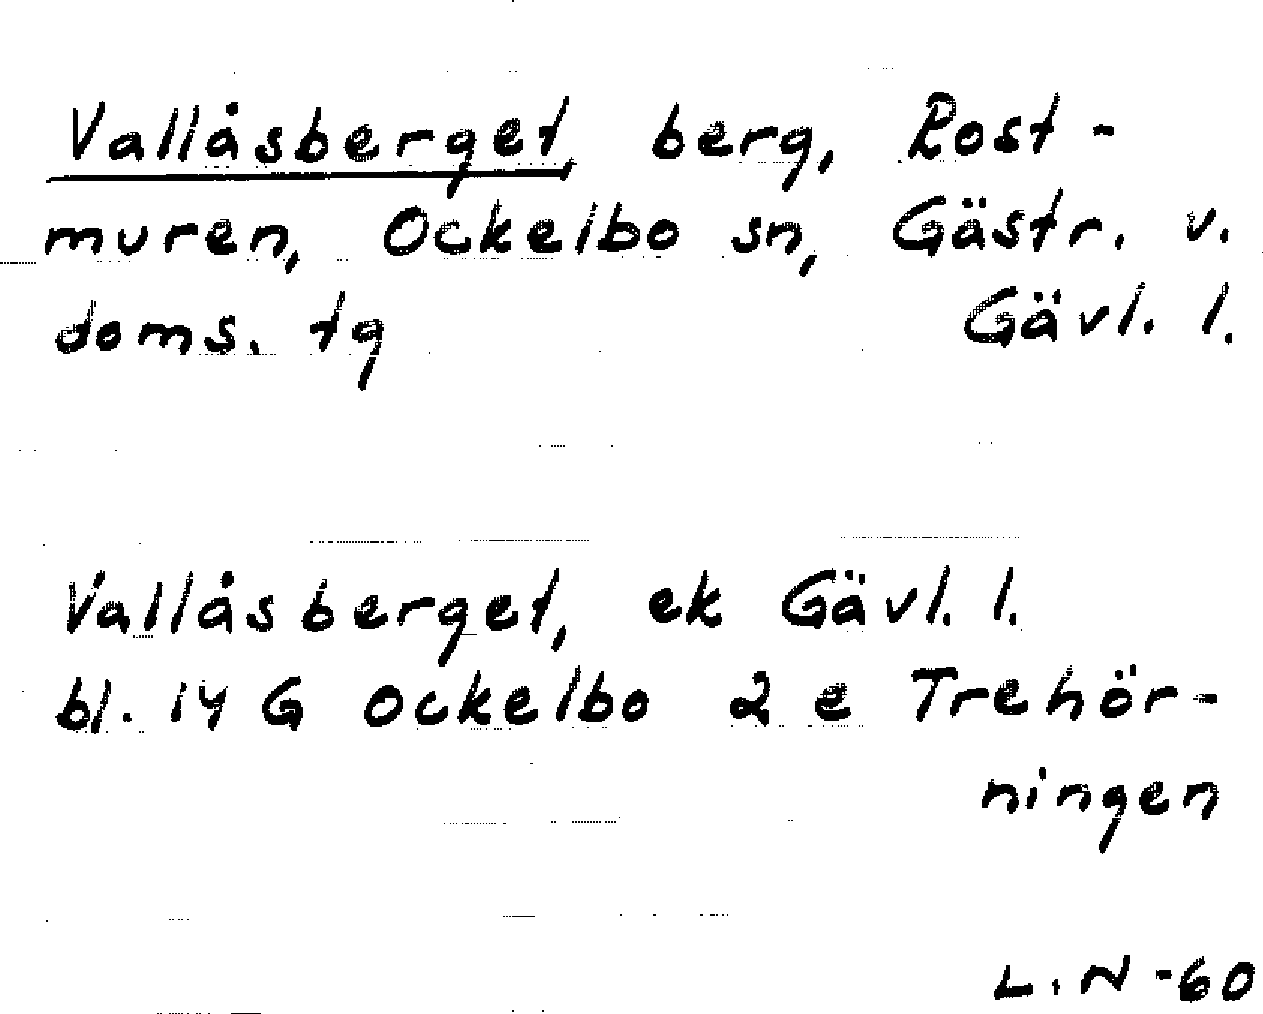 Vallåsberget, berg, Rost-
muren, Ockelbo sn, Gästr. v.
doms. tg Gävl. l.
Vallåsberget, ek Gävl. l.
bl. 14 G Ockelbo 2 e Trehör-
ningen
L.N -60